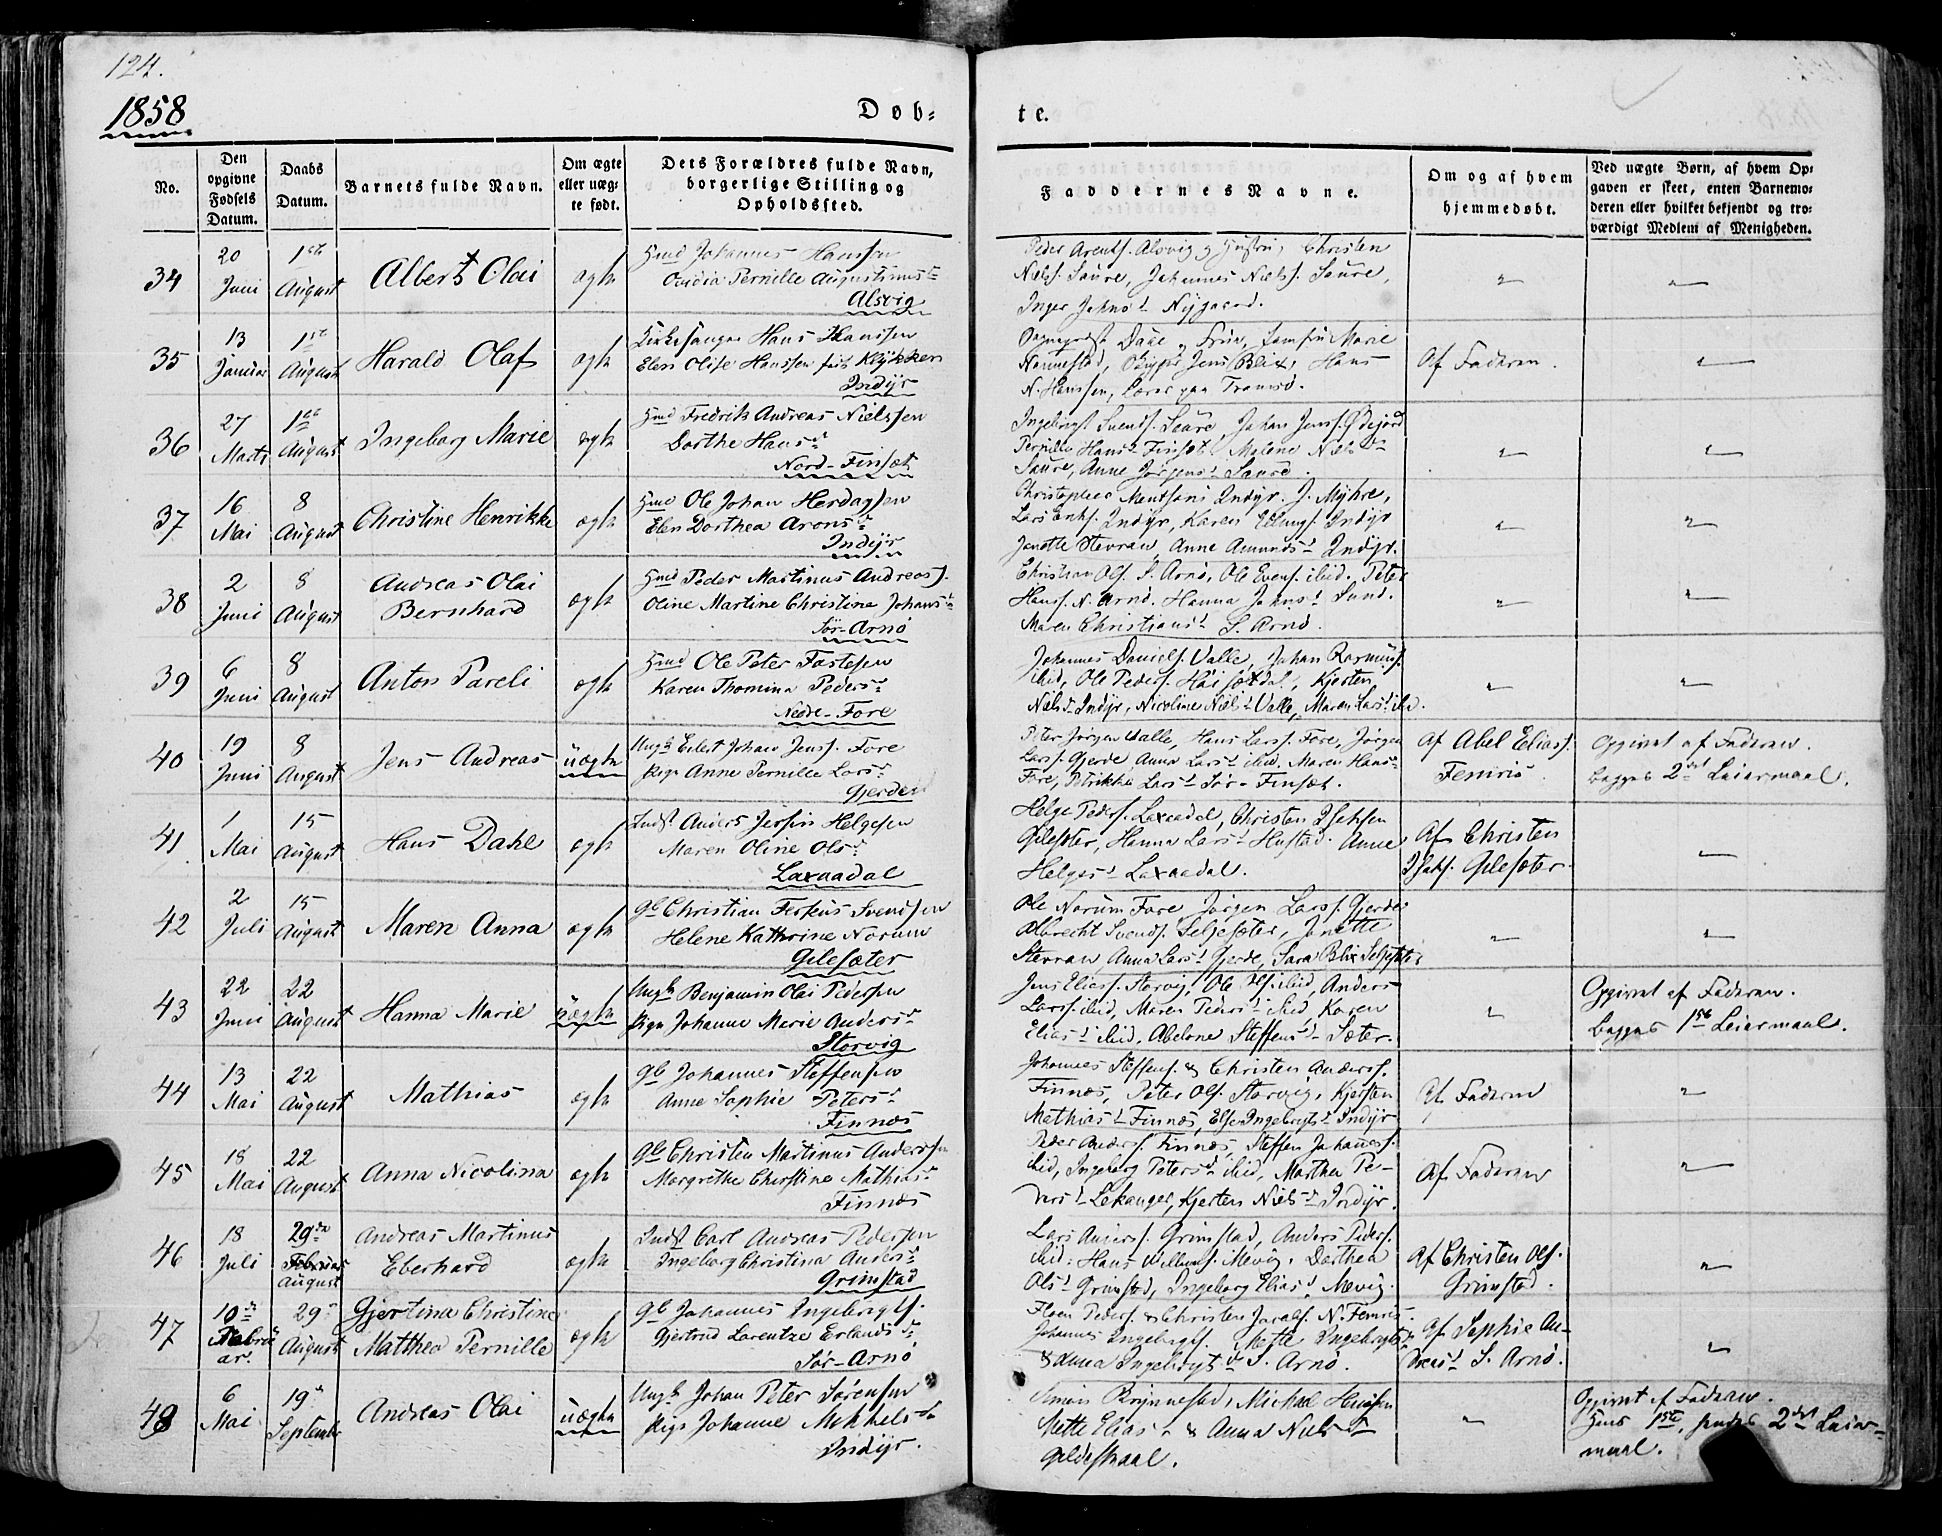 124.
1858
Døb-
te.
No.
Den opgivne Fødsels Datum.
Daabs Datum.
Barnets fulde Navn.
Om ægte eller uægte født.
Dets Forældres fulde Navn, borgerlige Stilling og Opholdssted.
Faddernes Navne.
Om og af hvem hjemmedøbt.
Ved uægte Børn, af hvem Opgaven er skeet, enten Barnemoderen eller hvilket bekjendt og troværdigt Medlem af Menigheden.
34
20 Juni
1ste August
Albert Olai
ægte
Hmd Johannes Hanssen
Ovidia Pernille Augustinusdr
Alsvig
Peder Arents. Alsvig og Hustru, Christen
Niels. Saure, Johannes Niels. Saure,
Inger Johnsd Nygaard.
35
13 Januar
1ste August
Harald Olaf
ægte
Kirkesanger Hans Hanssen
Elen Olise Hanssen født Klykken
Indyr
Daae og Frue, Jomfru Marie
Jens Blix, Hans
N. Hanssen, Tromsø.
Af Faderen.
36
27 Marts
1ste August
Ingeborg Marie
ægte
Hmd Fredrik Andreas Nielssen
Dorthe Hansdr
Nord-Finset
Ingebrigt Svends. Saure Johan Jens. Ødejord
Pernille Hansd Finset Malene Nielsdr
Saure, Anne Jørgensd Saure.
37
16 Mai
8 August
Christine Henrikke
ægte
Hmd Ole Johan Herdagsen
Elen Dorthea Aronsdr
Indyr
Christopher Indyr. J. Myhre,
Lars Eriks. Indyr, Karen Ellings. Indyr
Janette Stevraw, Anne Amundsd Indyr.
38
2 Juni
8 August
Andreas Olai
Bernhard
ægte
Hmd Peder Martinus Andreas.
Oline Martine Christine Johansdr
Sør-Arnö
Christian Ols. S. Arnö, Ole Evens. ibid. Peter
Hans. N. Arnö. Hanna Johnsd Sund.
Maren Christiansd S. Arnö.
39
6 Juni
8 August
Anton Pareli
ægte
Hmd Ole Peter Fastesen
Karen Thomina Pedersdr
Nedre-Fore
Johannes Daniels. Valle, Johan Rasmus.
ibid, Ole Peders. Kjersten
Nielsd Indyr, Nicoline Nielsd Valle, Maren Larsd ibd.
40
19 Juni
8 August
Jens Andreas
uægte
Ungk Eilert Johan Jens. Fore
Pige Anne Pernille Larsdr
Gjerden
Peter Jørgen Valle, Hans Lars. Fore, Jørgen
Lars. Gjerde Anna Larsd ibid. Maren Hansdr
Fore, Petrikke Larsd Sør-Finset.
Af Abel Elias.
Femris.
Opgivet af Faderen.
begges 2det Leiermaal.
41
1 Mai
15 August
Hans Dahl
ægte
Inds. Anders Jersin Helgesen
Maren Oline Olsdr
Laxaadal
Helge Peders. Laxaadal, Christen Isaksen
Gilesæter, Hanna Larsd Hustad. Anne
Helgesd Laxaadal.
Af Christen
Isaks. Gilesæter.
42
2 Juli
15 August
Maren Anna
ægte
Gb Christian Ferkus Svendsen
Helene Kathrine Norum
Gilesæter
Ole Norum Fore Jørgen Lars. Gjerde
Albrecht Svends. Seljesæter, Janette
Stevraw, Anna Larsd Gjerde, Sara Blix Seljesæter
43
22 Juni
22 August
Hanna Marie
uægte
Ungk Benjamin Olai Pedersen
Pige Johanne Marie Andersdr
Storvig
Jens Elias. Storvig, Ole Ols. ibid, Anders
Lars. ibid, Maren Pedersd ibid, Karen
Eliasd ibid, Abelone Steffensd Sæter.
Opgivet af Faderen.
begges 1ste Leiermaal.
44
13 Mai
22 August
Mathias
ægte
Gb Johannes Steffensen
Anne Sophie Petersdr
Finnæs
Johannes Steffens. & Christen Anders.
Finnæs, Peter Ols. Storvig, Kjersten
Mathiasd Finnæs, Else Ingebrigtsd Indyr
Af Faderen
45
18 Mai
22 August
Anna Nicolina
ægte
Gb Christen Martinus Anderssen
Margrethe Christine Mathiasdr
Finnæs
Peder Anders. Finnæs, Steffen Johannes.
ibid, Ingeborg Petersd ibid, Marthea Pe-
dersd Lekanger, Kjersten Nielsd Indyr.
Af Faderen
46
18 Juli
29de Februar August
Andreas Martinus
Eberhard
ægte
Inds. Carl Andreas Pedersen
Ingeborg Christina Andersdr
Grimstad
Lars Anders. Grimstad, Anders Peders.
ibid: Hans Willums. Mevig. Dorthea
Olsd Grimstad, Ingeborg Eliasd Mævig.
Af Christen Ols.
Grimstad.
47
10de Februar.
29de August
Gjertina Christine
Matthea Pernille
ægte
Gb Johannes Ingebrigts.
Gjertrud Larentze Erlandsdr
Sør-Arnö
Peders. & Christen N. Femris.
Johannes Ingebrigts. Mette Ingebrigtsdr
& Anna Ingebrigtsdr S. Arnö.
Af Sophie An-
dreasd S. Arnö.
48
6 Mai
19de September
Andreas Olai
uægte
Ungk Johan Peter Sørensen
Pige Johanne Mikkelsdr
Indyr.
Simon Brynnestad, Michael
Mette Eliasd & Anna Nielsdr
Gildeskaal.
Opgivet af Faderen.
Hans 1ste, hendes 2det Leier-
maal.